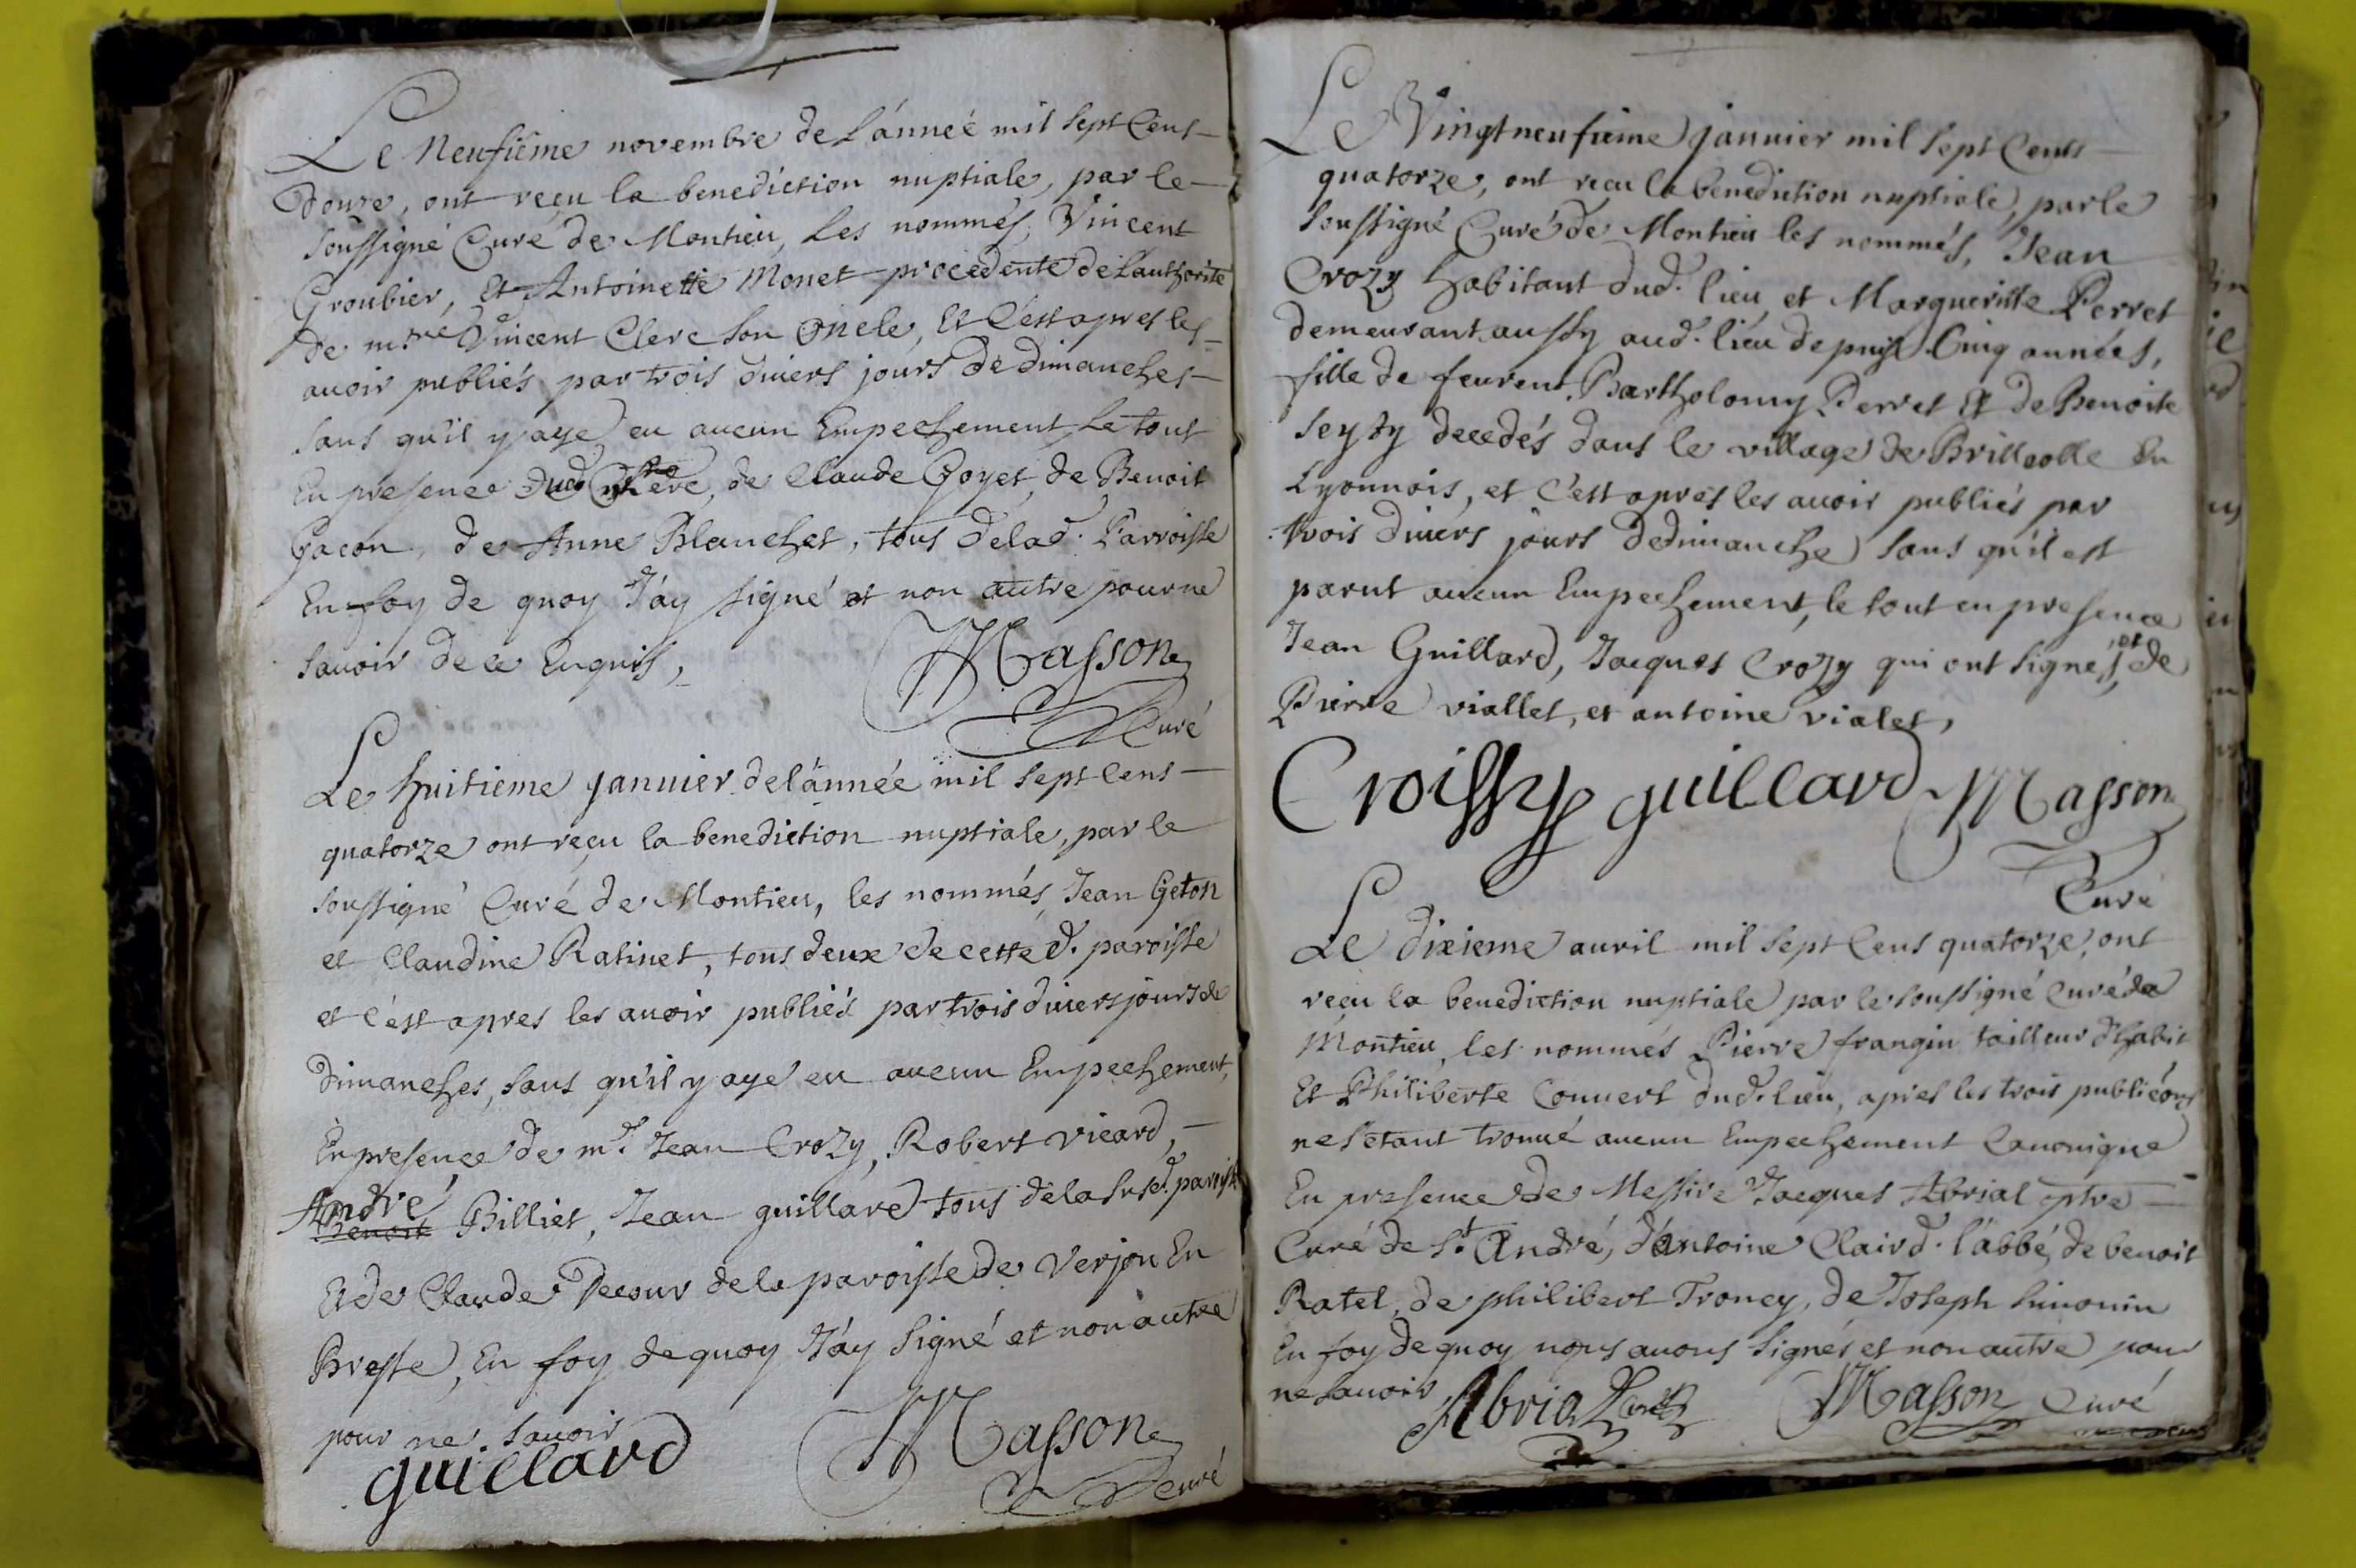 Le Neufiéme novembre de L'année mil sept Cens
Douze, ont reçu la benediction nuptiale, par le
soussigné Curé de Montieu, Les nommés, Vincent
Groubier, Et Antoinette Monet procedente de L'authorité
de m.tre Vincent Clerc son oncle, Et C'est apres les
avoir publiés par trois divers jours de dimanches
sans qu'il y aye eu aucun Empechement, Le tout
En presence dud. Clerc, de Claude Goyet, de Benoit
Gacon, de Anne Blanchet, tous de lad. Parroisse
En foy de quoy J'ay signé et non autre pour ne
savoir de ce Enquis,
Masson
Curé
Le huitieme janvier de l'année mil sept Cens
quatorze ont reçu la benediction nuptiale, par le
soussigné Curé de Montieu, les nommés Jean Geton
et Claudine Ratinet, tous deux de cette d. paroisse
et C'est apres les avoir publiés par trois divers jours de
dimanches, sans qu'il y aye eu aucun Empechement,
En presence de m.r Jean Crozy, Robert vicard,
André
Benoit Billiet, Jean guillard tous de la susd. paroisse
Et de Claude Decour de la paroisse de Verjon En
Bresse, En foy de quoy J'ay signé et non autre
pour ne savoir
guillard Masson
Curé
Le Vingt neufieme janvier mil sept Cents
quatorze, ont reçu la benediction nuptiale, par le
soussigné Curé de Montieu les nommés, Jean
Crozy habitant dud. lieu, et Margueritte Perret
demeurant aussy aud. lieu depuis Cinq années,
fille de feurent Bartholomy Perret Et de Benoite
Seyty decedés dans le village de Brilleolle En
Lyonnois, et C'est apres les avoir publiés par
trois divers jours de dimanche sans qu'il est
parut aucun Empechement, le tout en presence
Jean Guillard, Jacques Crozy qui ont signés, et de
Pierre viallet, et antoine vialet,
Croissy guillard Masson
Curé
Le dixieme avril mil sept Cens quatorze, ont
reçu la benediction nuptiale par le soussigné Curé de
Montieu, les nommés Pierre frangin tailleur d'habit
Et Philiberte Convert dud. lieu, apres les trois publicons
ne s'etant trouvé aucun Empechement Canonique
En presence de Messire Jacques Abrial ptre
Curé de St André, d'antoine Clair d. l'abbé, de benoit
Ratel, de philibert Troncy, de Joseph simonin
En foy de quoy nous avons signés et non autre pour
ne savoir
Abrial Curé Masson Curé